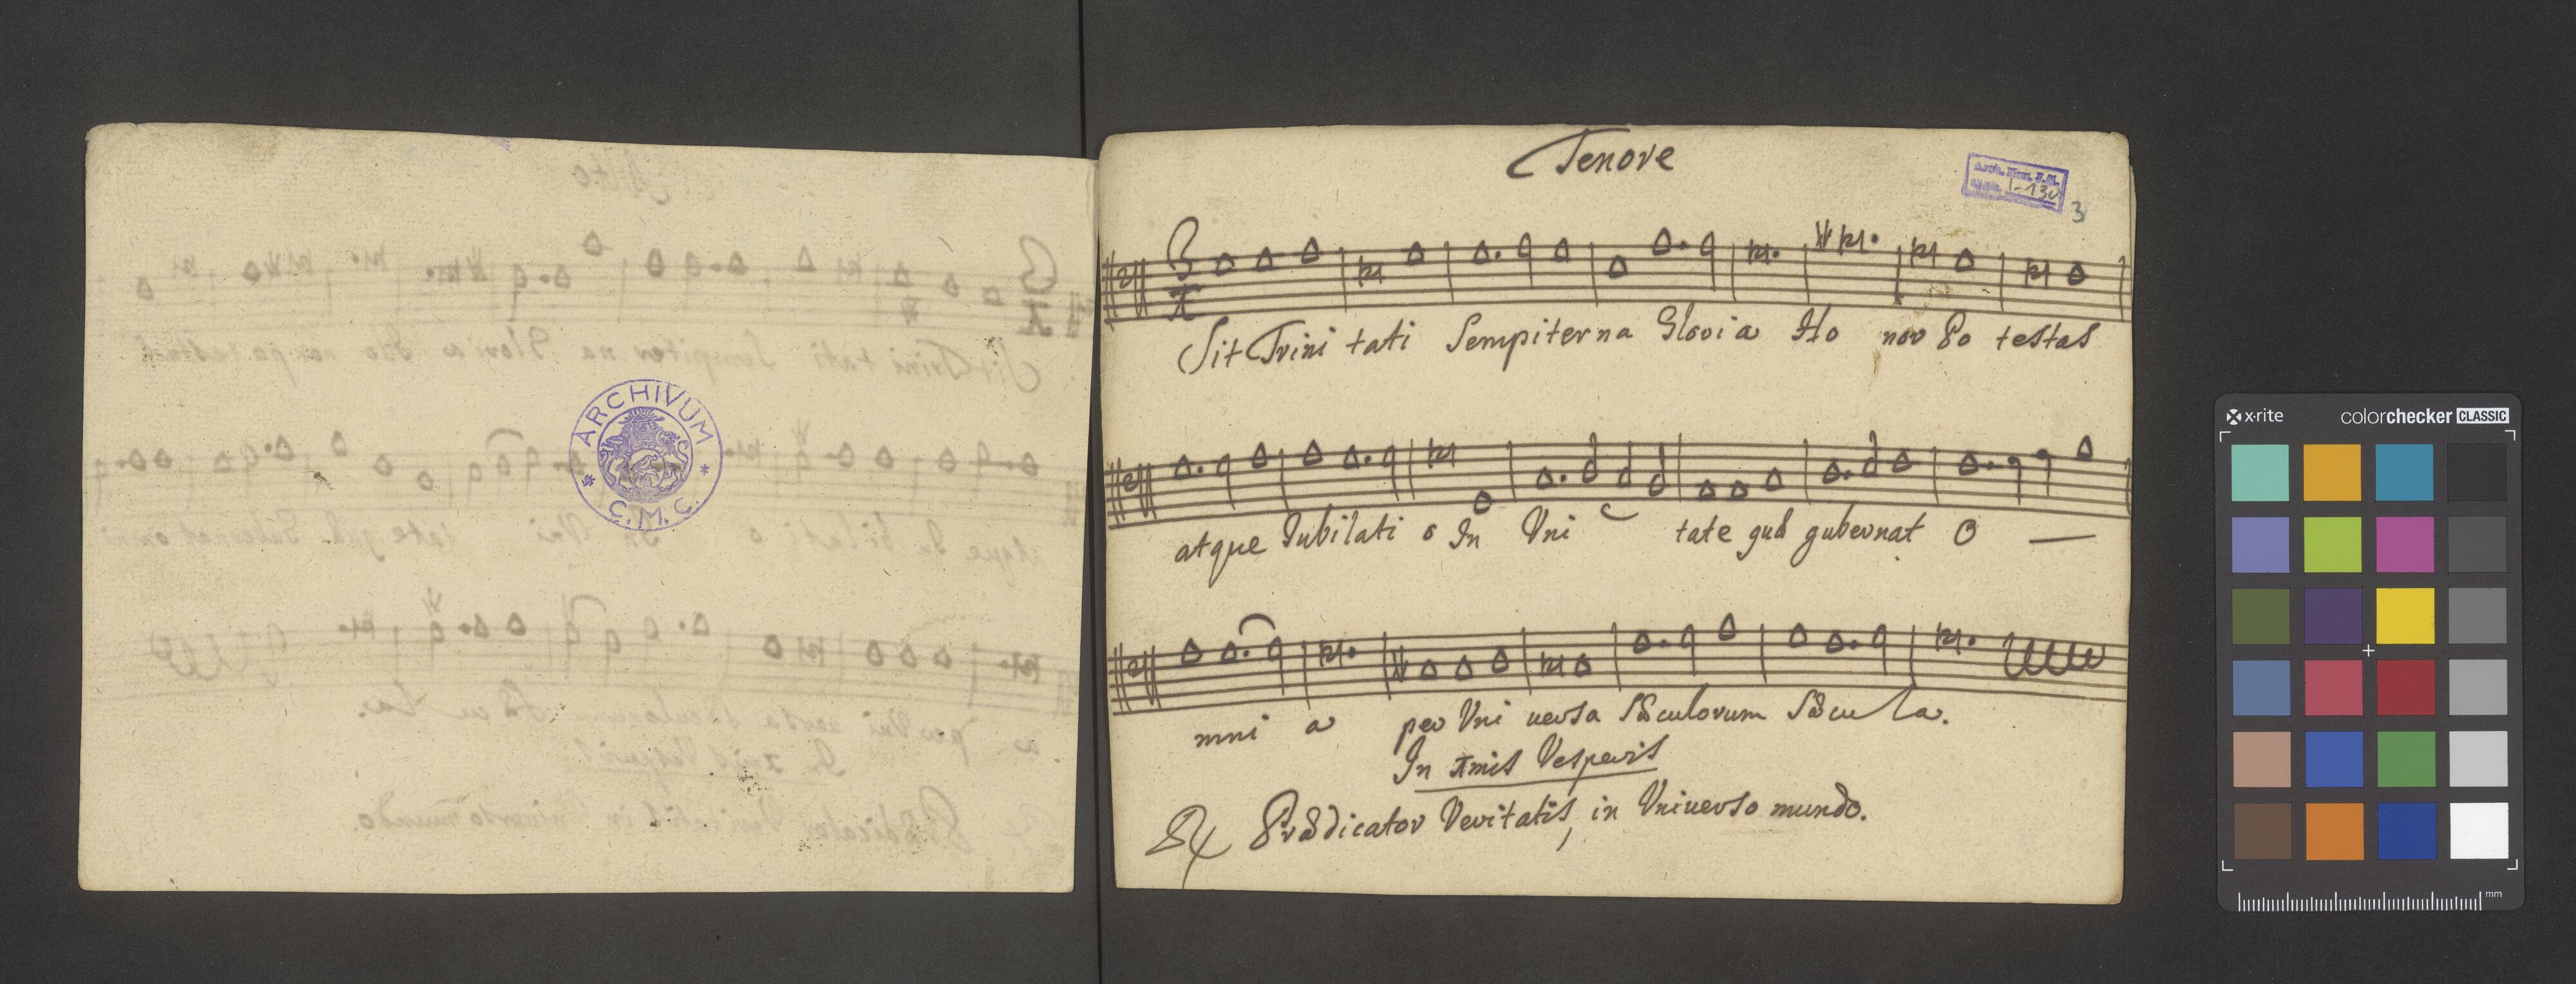 ARCHIVUM
* C.M.C. *
Tenore
I-130
3
Sit Trini tati Sempiterna Gloria Ho nor Po testas
atque Iubilati o In Vni tate quæ gubernat O —
mni a per Vni uersa Sæculorum Sæcu la.
In xmis Vesperis
℟ Prædicator Veritatis, in Vniuerso mundo.
x-rite colorchecker CLASSIC
mm